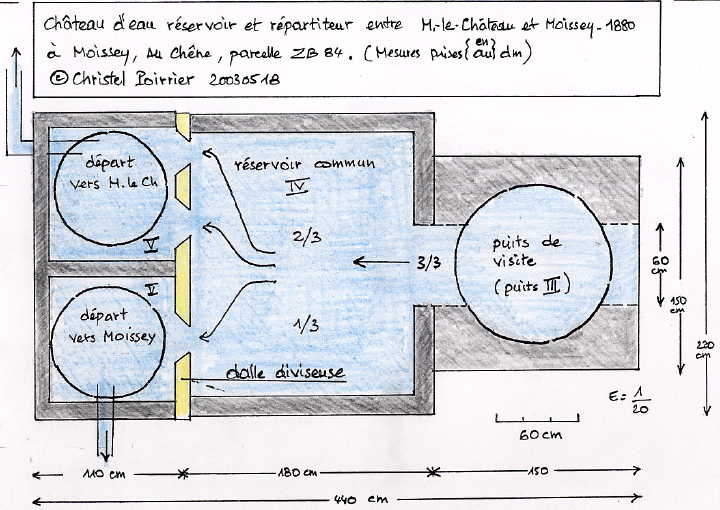 Château d'eau réservoir et répartiteur entre M.-le-Château et Moissey-1880
à Moissey, Au Chêne, parcelle ZB 84. (Mesures prises {en au} dm)
© Christel Poirrier 20030518
départ
vers M. le Ch
V
réservoir commun
IV
2/3
3/3
1/3
puits de
visite
(puits III)
V
départ
vers Moissey
dalle diviseuse
60
cm
150
cm
220
cm
E = 1/20
60 cm
110 cm
180 cm
150
440 cm